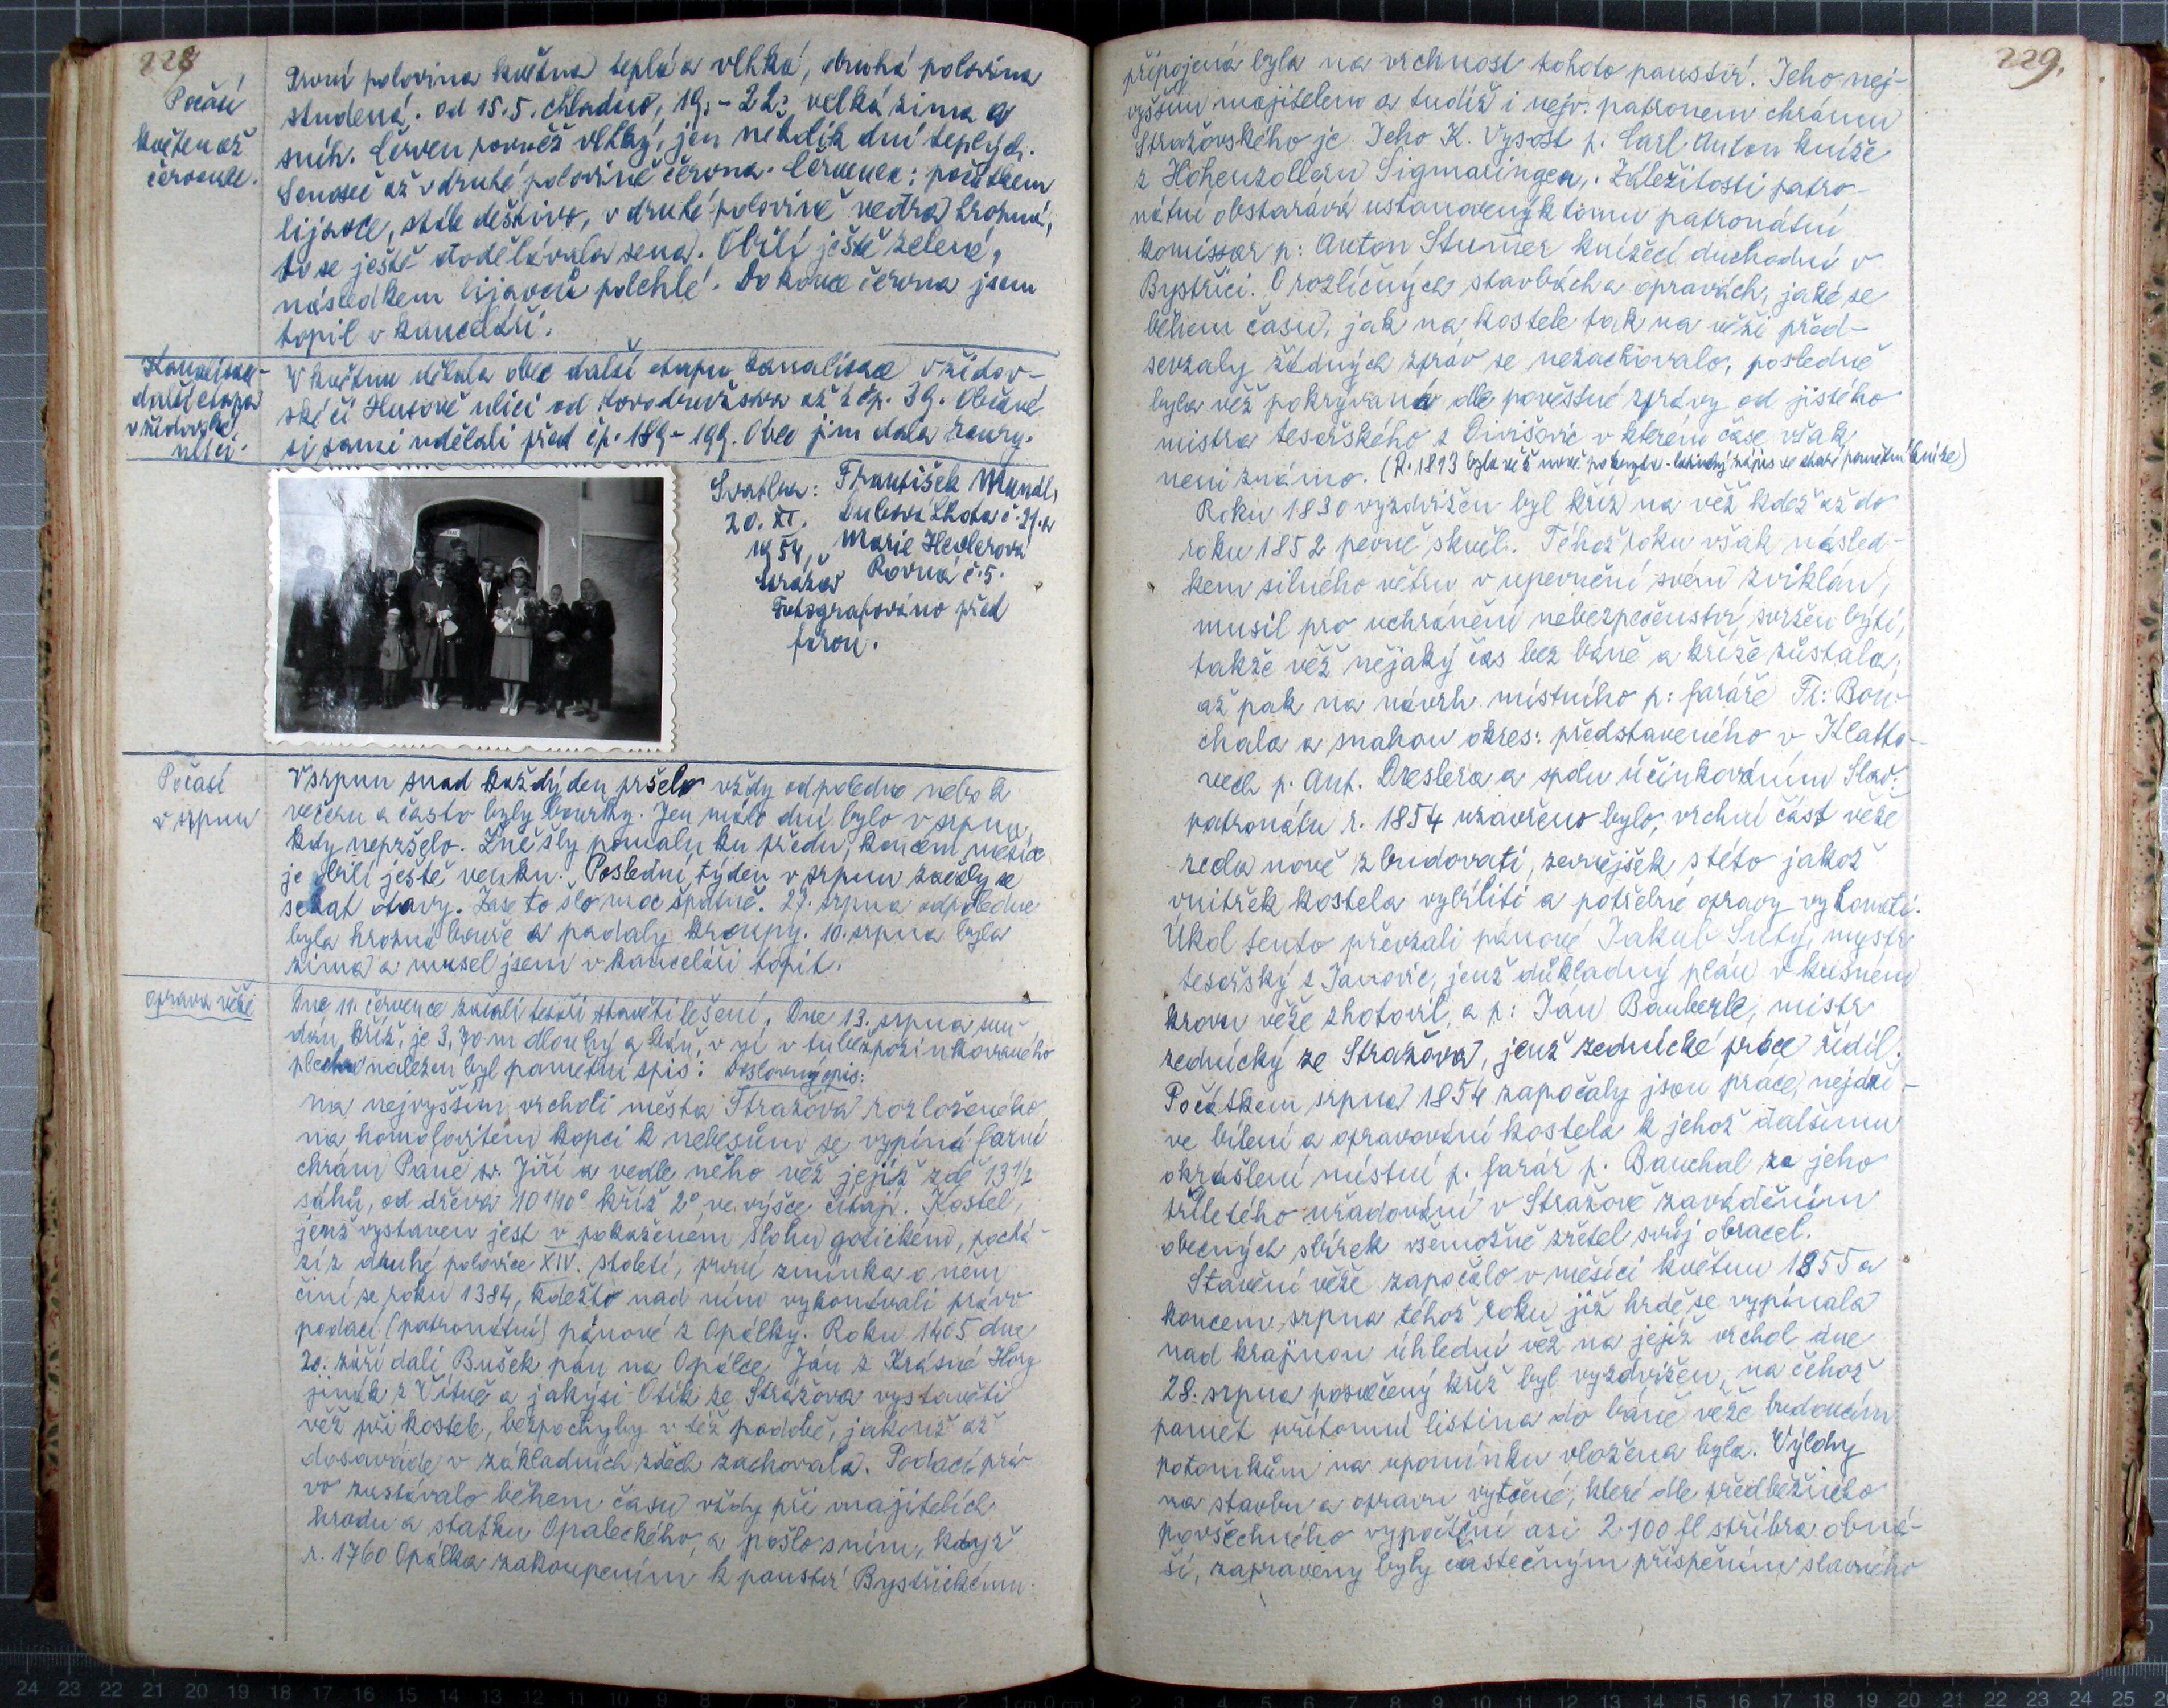 228
Počasí
květen až
červenec.
První polovina května teplá a vlhká, druhá polovina
studená. od 15.5. chladno, 19.-22. velká zima a
sníh. Červen rovněž vlhký, jen několik dní teplých.
Senoseč až v druhé polovině června. Červenec: počátkem
lijavce, stále deštivo, v druhé polovině vedra hrozná,
to se ještě dodělávala sena. Obilí ještě zelené,
následkem lijavců polehlé. Do konce června jsem
topil v kanceláři.
Kanalisace-
další etapa
v židovské
ulici.
V květnu dělala obec další etapu kanalisace v židov-
ské či Husově ulici od družstva až k čp. 39. Občané
si sami udělali před čp. 189-199. Obec jim dala roury.
Svatba: František Mandl,
20. XI. Dubová Lhota č. 21. a
1954, Marie Hevlerová
Strážov Rovná č. 5.
Fotografováno před
farou.
Počasí
v srpnu
V srpnu snad každý den pršelo vždy odpoledne nebo k
večeru a často byly bouřky. Jen málo dní bylo v srpnu,
kdy nepršelo. Žně šly pomalu ku předu, koncem měsíce
je obilí ještě venku. Poslední týden v srpnu začaly se
sekat otavy. Zase to šlo moc špatně. 27. srpna odpoledne
byla hrozná bouře a padaly kroupy. 10. srpna byla
zima a musel jsem v kanceláři topit.
oprava věže
Dne 11. července začali tesaři stavěti lešení. Dne 13. srpna sun-
dán kříž, je 3,70 m dlouhý a báň, v ní v tubě z pozinkovaného
plechu nalezen byl pamětní spis: Doslovný opis:
na nejvyšším vrcholi města Stražova rozloženého
na homolovitem kopci k nebesům se vypíná farní
chrám Paně sv. Jiří a vedle něho věž jejíž zdě 13 1/2
sáhů, od dřeva 10 1/10° kříž 2° ve výšce čítají. Kostel,
jenž vystaven jest v pokaženém slohu gotickém, pochá-
zí z druhé polovice XIV. století, první zmínka o něm
činí se roku 1384, kdežto nad ním vykonávali právo
podací (patronátní) pánové z Opálky. Roku 1405 dne
20. září dali Bušek pán na Opálce, Ján z Krásné Hory
jinák z Vitně a jakýsi Otík ze Strážova vystavěti
věž při kostele, bezpochyby v též podobě, jakouž až
dosaváde v základních zdech zachovala. Podací prá-
vo zustávalo během času vždy při majitelích
hradu a statku Opaleckého, a pošlo s ním, když
r. 1760 Opálka zakoupením k panství Bystřickému
229.
připojená byla na vrchnost tohoto panství. Jeho nej-
vyšším majitelem a tudíž i nejv. patronem chrámu
Stražovského je Jeho K. Vysost p. Carl Anton kníže
z Hohenzollern Sigmaringen. Záležitosti patro-
nátní obstarává ustanovený k tomu patronátní
komissar p: Anton Stumer knížecí duchodní v
Bystřici. O rozličných stavbách a opravách, jaké se
během času, jak na kostele tak na věži před-
sevzaly žádných zpráv se nezachovalo, posledně
byla věž pokrývaná dle pověstné zprávy od jistého
mistra tesařského z Divišovic v kterém čase však
není známo. (R. 1813 byla věž nově pokryta - latinský zápis ve staré pamětní knize)
Roku 1830 vyzdvižen byl kříž na věž kdež až do
roku 1852 pevně skvěl. Téhož roku však násled-
kem silného větru v upevnění svém zviklán,
musil pro uchránění nebezpečenství, svržen býti,
takže věž nějaký čas bez báně a kříže zůstala;
až pak na návrh místního p: faráře Fr: Bou-
chala a snahou okres: představeného v Klatto-
vech p. Ant. Dreslera a spolu účinkováním Slav:
patronátu r. 1854 uzavřeno bylo, vrchní část věže
zcela nově zbudovati, zevnějšek stéto jakož
vnitřek kostela vybíliti a potřebné opravy vykonati.
Úkol tento převzali pánové Jakub Sutý, mystr
tesařský z Janovic, jenž důkladný plán v kusném
krovu věže zhotovil, a p: Ján Bauberle, mistr
zednický ze Stražova, jenž zednické práce řídil.
Počátkem srpna 1854 započaly jsou práce, nejdří-
ve bílení a opravování kostela k jehož dalšímu
okrášlení místní p. farář p. Bauchal za jeho
tříletého uřadování v Stražově zaváděním
obecných sbírek všemožně zřetel svůj obracel.
Stavění věže započalo v měsíci květnu 1855 a
koncem srpna téhož roku již hrdě se vypínala
nad krajinou úhlední věž na jejíž vrchol dne
28. srpna posvěcený kříž byl vyzdvižen, na čehož
pamět přítomní listina do báně věže budoucím
potomkům na upomínku vložena byla. Výlohy
na stavbu a opravu vytčené, které dle předběžného
povšechného vypočtění asi 2100 fl stříbra obná-
ší, zapraveny byly částečným přispěním slavného